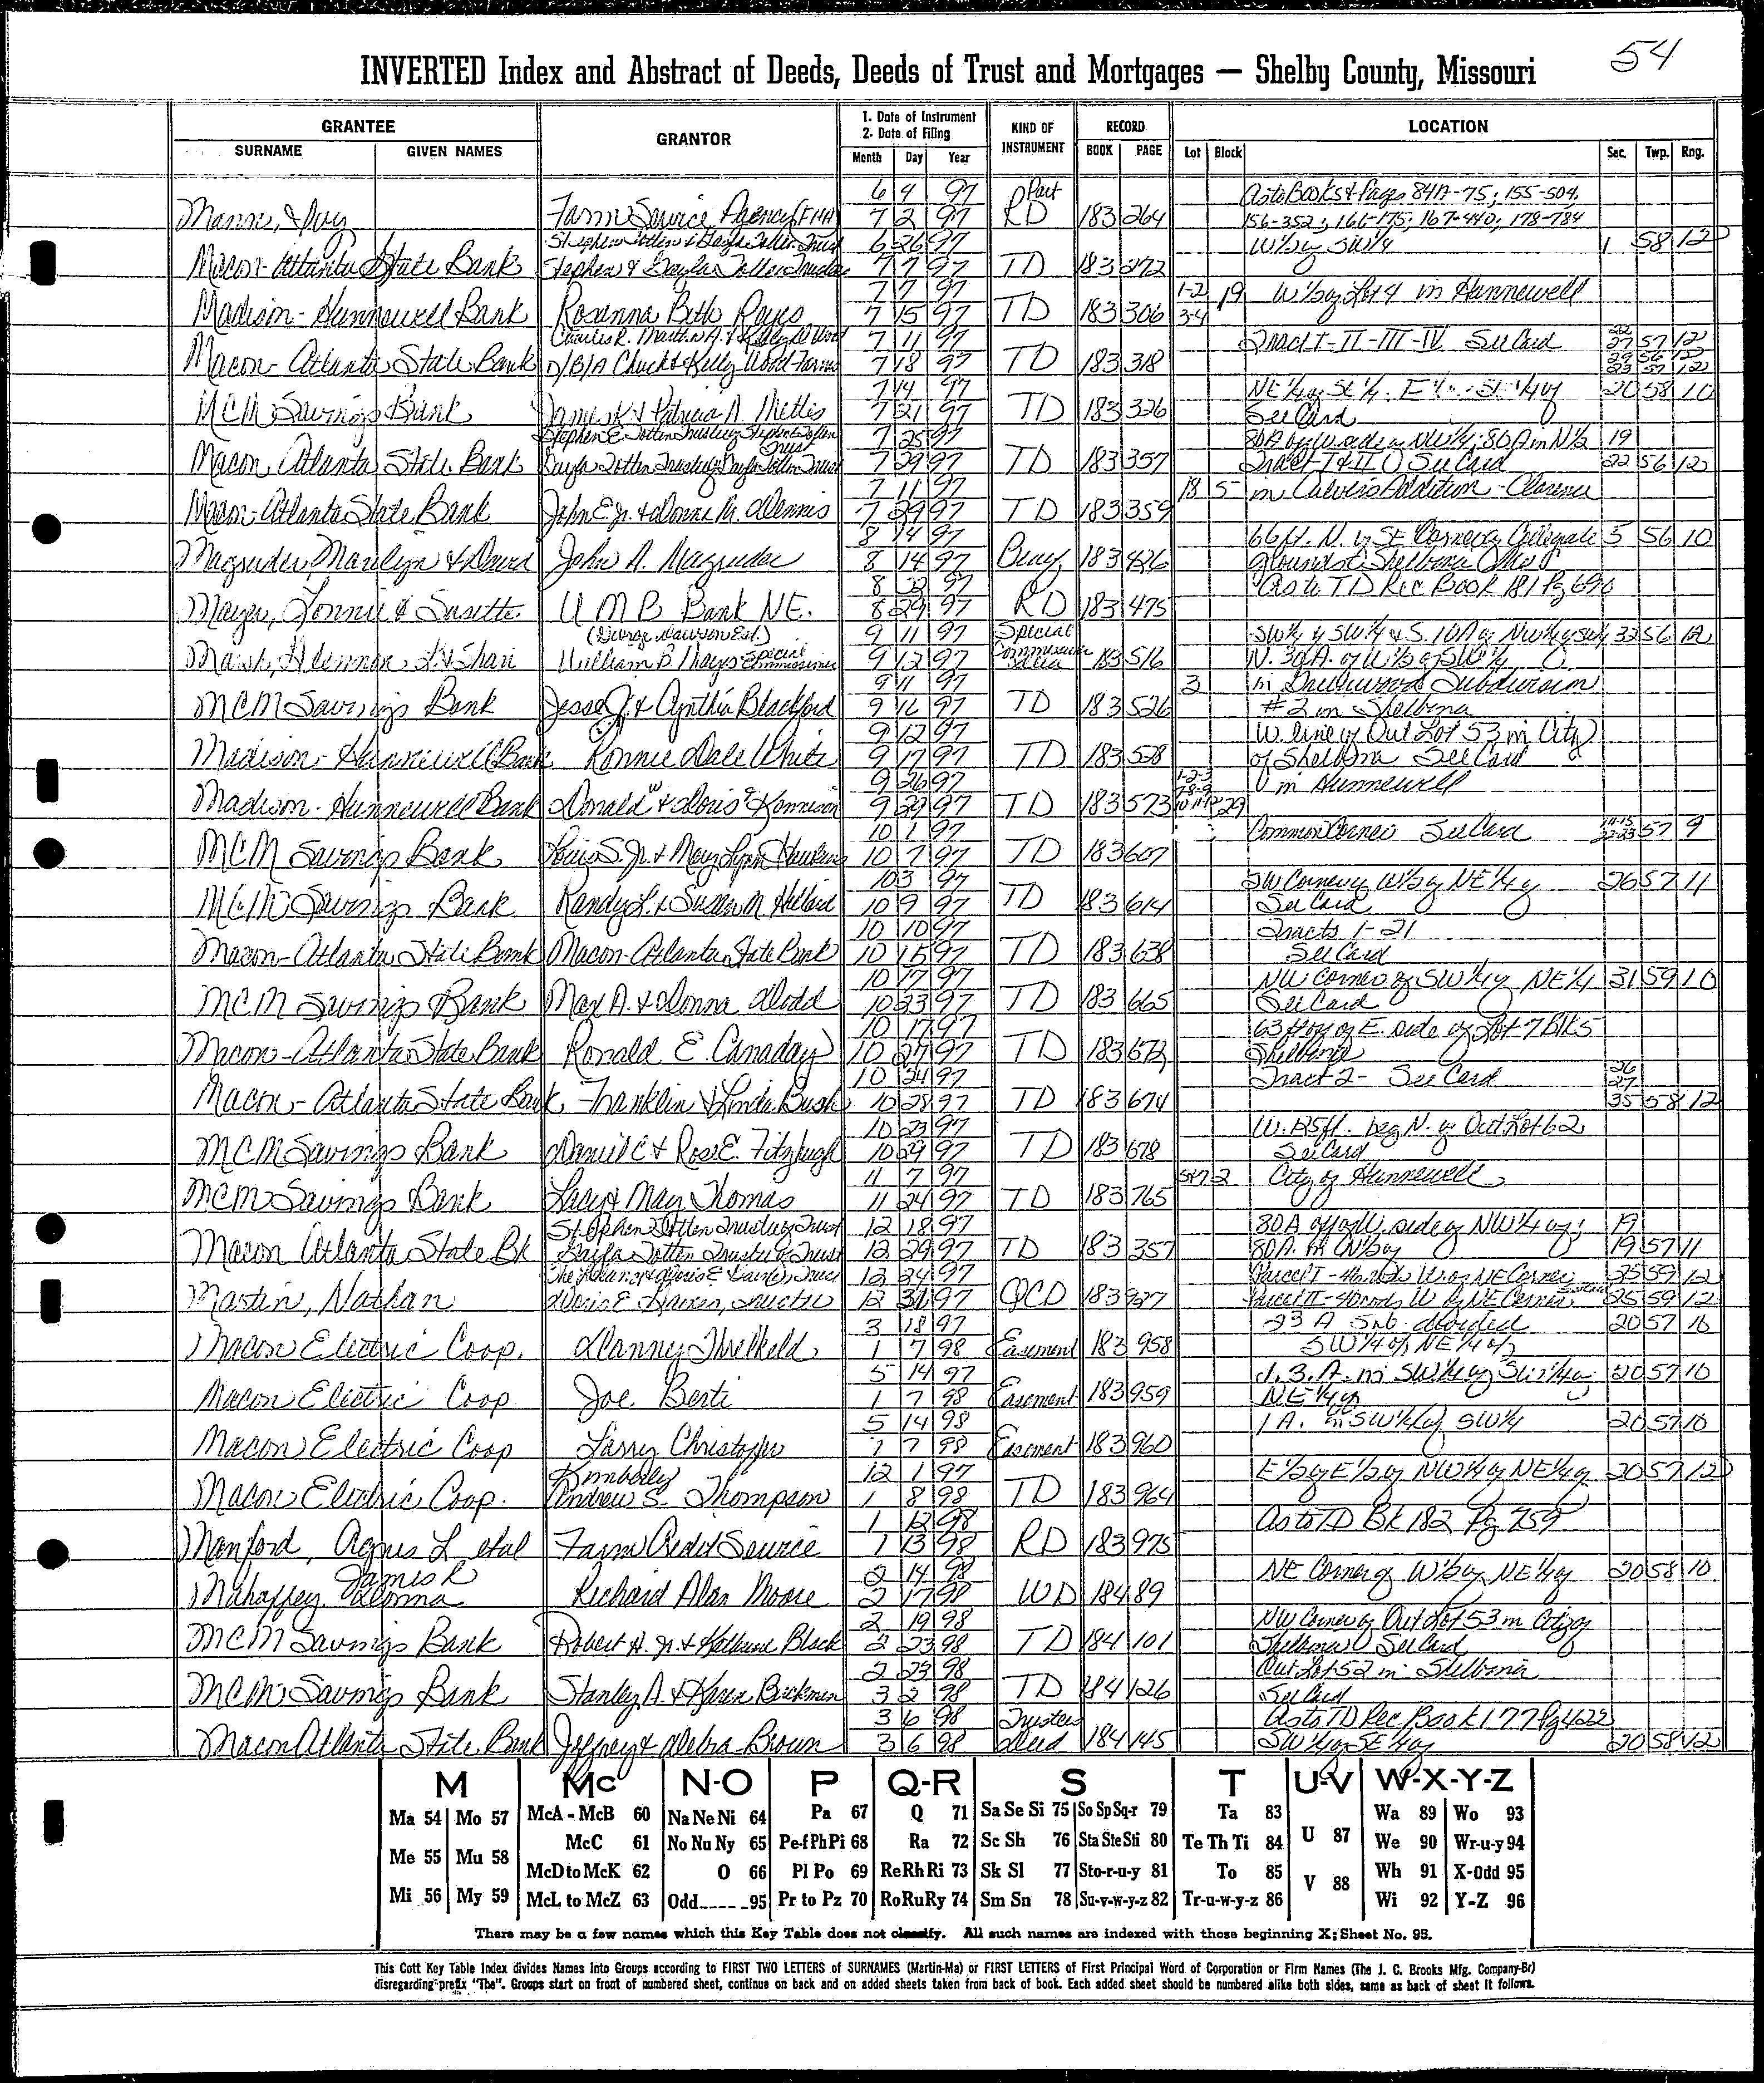 54
INVERTED Index and Abstract of Deeds, Deeds of Trust and Mortgages — Shelby County, Missouri
GRANTEE GRANTOR 1. Date of Instrument 2. Date of Filing KIND OF INSTRUMENT RECORD LOCATION
SURNAME GIVEN NAMES Month Day Year BOOK PAGE Lot Block Sec. Twp. Rng.
6 9 97 Part As to Books & Pages 84A-75; 155-504,
Mann, Ivy Farm Service Agency (FHA) 7 2 97 RD 183 264 156-352; 161-175; 167-440; 178-784
6 26 97 W½ of SW¼ 1 58 12
Macon-Atlanta State Bank Stephen & Gayla Totten Trustee 7 7 97 TD 183 272
7 7 97 1-2 19 W½ of Lot 4 in Hunnewell
Madison-Hunnewell Bank Rosanna Beth Rayes 7 15 97 TD 183 306 3-4
Charles R. Martha A. & Kelly D Wood 7 11 97 Tract I-II-III-IV See Card 27 57 12
Macon-Atlanta State Bank D/B/A Chuck & Kelly Wood Farms 7 18 97 TD 183 318 29 56 12
7 14 97 NE¼ of SE¼. 20 58 10
MCM Savings Bank James K & Patricia A Mettes 7 21 97 TD 183 326 See Card
7 25 97 80A off W. side of NW¼; 80A in N½ 19
Macon Atlanta State Bank Gayla Totten Trustee of Gayla Totten Trust 7 29 97 TD 183 357 Tract I & II See Card 22 56 12
7 11 97 18 5 in Culvers Addition - Clarence
Macon-Atlanta State Bank John E Jr. & Donna M. Dennis 7 29 97 TD 183 359
8 14 97 66 ft. N. of SE Corner of Collegiate 5 56 10
Magruder, Marilyn & David John A. Magruder 8 14 97 183 426 grounds Shelbina
8 22 97 As to TD Rec Book 181 Pg 696
Mayes, Lonnie & Susette U M B Bank NE. 8 29 97 RD 183 475
(George Dawson Est.) 9 11 97 Special SW¼ of SW¼ & S. 10A of NW¼ of SW¼ 32 56 12
William B Mays Special Commissioner 9 12 97 Commissioner Deed 183 516 N. 30A. of W½ of SW¼
9 11 97 3 in Drulewoods Subdivision
MCM Savings Bank Jesse J. & Cynthia Blackford 9 16 97 TD 183 526 #2 in Shelbina
9 12 97 W. line of Out Lot 53 in City
Madison-Hunnewell Bank Ronnie Dale White 9 17 97 TD 183 528 of Shelbina See Card
9 26 97 1-2-3 in Hunnewell
Madison-Hunnewell Bank Donald W & Doris E Kennison 9 29 97 TD 183 573 7-8-9 10 11-12 29
10 1 97 Common Corner See Card 57 9
MCM Savings Bank Louis S. Jr. & Mary Lynn Hawkins 10 7 97 TD 183 607
10 3 97 SW Corner of W½ of NE¼ of 26 57 11
MCM Savings Bank Randy L. & Susan M Hilliard 10 9 97 TD 183 614 See Card
10 10 97 Tracts 1-21
Macon-Atlanta State Bank Macon-Atlanta State Bank 10 15 97 TD 183 638 See Card
10 17 97 NW Corner of SW¼ of NE¼ 31 59 10
MCM Savings Bank Max A. & Donna Dodd 10 23 97 TD 183 665 See Card
10 17 97 63 ft off of E. side of Lot 7 Blk 5
Macon-Atlanta State Bank Ronald E. Canaday 10 27 97 TD 183 672 Shelbina
10 24 97 Tract 2- See Card 26 27
Macon-Atlanta State Bank Franklin & Linda Bush 10 28 97 TD 183 674 35 58 12
10 23 97 W. 125 ft. beg N. of Out Lot 62
MCM Savings Bank Daniel C & Rose E. Fitzhugh 10 29 97 TD 183 678 See Card
11 7 97 5&7 2 City of Hunnewell
MCM Savings Bank Lacy & May Thomas 11 24 97 TD 183 765
Stephen Totten Trustee of Trust 12 18 97 80A off of W. side of NW¼ of; 19
Macon Atlanta State Bk Gayla Totten Trustee of Trust 12 29 97 TD 183 357 80A. in W½ of 19 57 11
12 24 97 Parcel I - 40 rods W. of NE Corner 25 59 12
Martin, Nathan Doris E 12 31 97 QCD 183 927 Parcel II - 40 rods W of NE Corner 25 59 12
3 18 97 23 A Sub divided 20 57 10
Macon Electric Coop. Danny Threlkeld 1 7 98 Easement 183 958 SW¼ of NE¼ of
5 14 97 .3. A. in SW¼ of 20 57 10
Macon Electric Coop Joe Berti 1 7 98 Easement 183 959 NE¼ of
5 14 98 1 A. in SW¼ of SW¼ 20 57 10
Macon Electric Coop Larry Christopher 1 7 98 Easement 183 960
Kimberly 12 1 97 E½ of E½ of NW¼ of NE¼ of 20 57 12
Macon Electric Coop. Andrew S. Thompson 1 8 98 TD 183 964
1 12 98 As to TD Bk 182 Pg 759
Manford, Agnes L etal Farm Credit Service 1 13 98 RD 183 975
James R 2 14 98 NE Corner of W½ of NE¼ of 20 58 10
Mahaffey, Donna Richard Alan Moore 2 17 98 WD 184 89
2 19 98 NW Corner of Out Lot 53 in City of
MCM Savings Bank Robert H. Jr. & Katherine Black 2 23 98 TD 184 101 Shelbina See Card
2 23 98 Out Lot 52 in Shelbina
MCM Savings Bank Stanley A. & Karen Buckman 3 2 98 TD 184 126 See Card
3 6 98 Trustees As to TD Rec Book 177 Pg 422
Macon Atlanta State Bank Jeffrey & Debra Brown 3 6 98 Deed 184 145 SW¼ of SE¼ of 20 58 12
M Mc N-O P Q-R S T U-V W-X-Y-Z
Ma 54 Mo 57 McA - McB 60 Na Ne Ni 64 Pa 67 Q 71 Sa Se Si 75 So Sp Sq-r 79 Ta 83 Wa 89 Wo 93
Me 55 Mu 58 McC 61 No Nu Ny 65 Pe-f Ph Pi 68 Ra 72 Sc Sh 76 Sta Ste Sti 80 Te Th Ti 84 U 87 We 90 Wr-u-y 94
McD to McK 62 O 66 Pl Po 69 Re Rh Ri 73 Sk Sl 77 Sto-r-u-y 81 To 85 V 88 Wh 91 X-Odd 95
Mi 56 My 59 McL to McZ 63 Odd 95 Pr to Pz 70 Ro Ru Ry 74 Sm Sn 78 Su-v-w-y-z 82 Tr-u-w-y-z 86 Wi 92 Y-Z 96
There may be a few names which this Key Table does not classify. All such names are indexed with those beginning X; Sheet No. 95.
This Cott Key Table Index divides Names Into Groups according to FIRST TWO LETTERS of SURNAMES (Martin-Ma) or FIRST LETTERS of First Principal Word of Corporation or Firm Names (The J. C. Brooks Mfg. Company-Br)
disregarding prefix "The". Groups start on front of numbered sheet, continue on back and on added sheets taken from back of book. Each added sheet should be numbered alike both sides, same as back of sheet it follows.